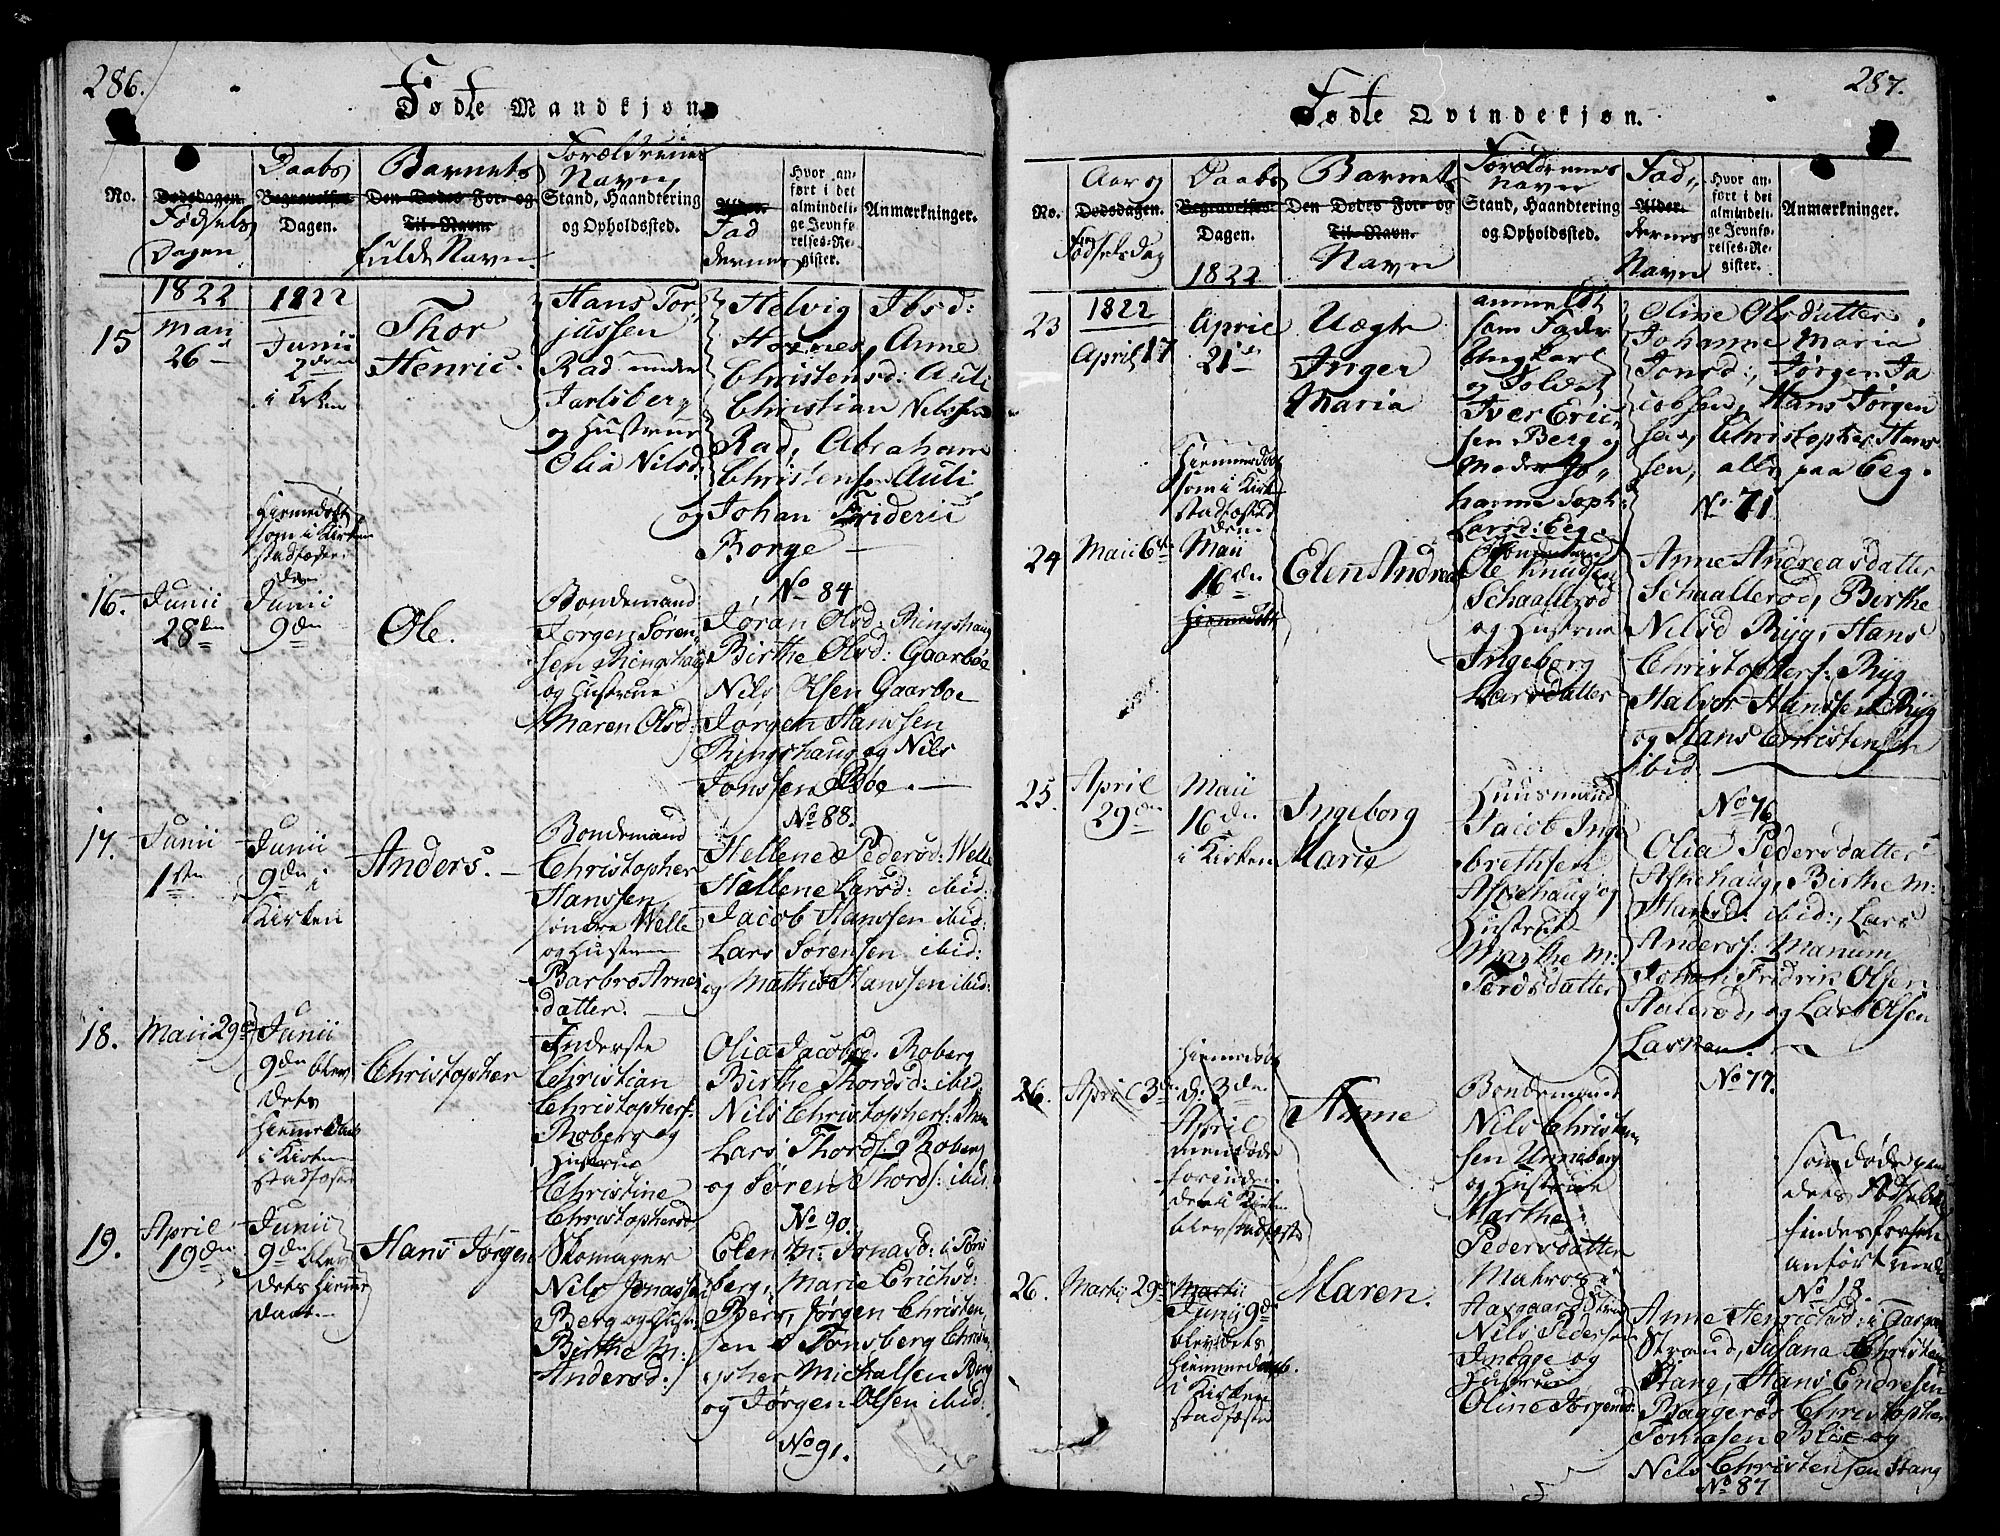 286.
Fødte Mandkjøn.
No.
Dødsdagen.
Fødsels
Dagen
Daabs
Begravelses
Dagen.
Barnets
Den Dødes For- og
Til-Navn.
fulde Navn
Forældrenes
Navn,
Stand, Haandtering
og Opholdssted.
Alder.
Fad
dernes
Hvor an-
ført i det
almindeli-
ge Jevnfø-
relses-Re-
gister.
Anmærkninger.
15
1822
Maii
26
1822
Junii
2den
i Kirken
Thor
Henric.
Hans Tor
jussen
Rad under
Jarlsberg
og Hustrue
Olia Nilsd:
Helvig Ibsd:
Anne
Christensd: Auli
Christian Nilssen
Rad, Abraham
Christensen Auli
og Johan Frideric
Borge
No 84
16.
Junii
28den
Hiemmedøbt
som i Kirken
stadfæstes
den
Junii
9den
Ole.
Bondemand
Jørgen Søren
sen Ringshaug
og Hustrue
Maren Olsd:
Jøran Olsd: Ringshaug
Birthe Olsd: Gaarboe
Nils Olsen Gaarboe
Jørgen Hanssen
Ringshaug og Nils
Jonssen Boe.
No 88.
17.
Junii
1ste
Junii
9den i
Kirken
Anders.
Bondemand
Christopher
Hanssen
søndre Welle
og Hustrue
Barbro Arnes
datter.
Hellene Pedersd: Welle
Hellene Larsd: ibid:
Jacob Hanssen ibid:
Lars Sørensen ibid:
og Mathis Hanssen ibid:
18.
Maii 29de
Junii
9den blev
dets
Hiemmedaab
i Kirken
stadfæstet
Christopher
Inderste
Christian
Christophers:
Roberg og
Hustrue
Christine
Christophersd:
Olia Jacobsd: Roberg
Birthe Thordsd: ibid:
Nils Christophers:
Lars Thords: Roberg
og Søren Thords: ibid.
No 90.
19.
April
19den
Junii
9den blev
dets Hiemme
daab
Hans Jørgen
Skomager
Nils Jonassen
Berg og Hustr:
Birthe M:
Andersd:
Elen M: Jonasd: i Tøns
berg, Marie Erichsd:
Berg, Jørgen Christen
sen Tønsberg Christ
opher Michalsen Berg
og Jørgen Olsen ibid:
No 91.
287.
Fødte Qvindekjøn.
No.
Aar og
Dødsdagen.
Fødselsdag
Daabs
Begravelses
Dagen.
1822
Barnets
Den Dødes For- og
Til-Navn.
Navn
Forældrenes
Navn
Stand, Haandtering
og Opholdssted.
Fad
Alder
dernes
Navn
Hvor an-
ført i det
almindeli-
ge Jevnfø-
relses-Re-
gister.
Anmærkninger.
23
1822
April 17
April
21de
Uægte
Inger
Maria
anmeldt
som Fader
Ungkarl
og Soldat
Iver Eric
sen Berg og
Moder Jo
hanne Soph:
Larsd: Eeg.
Oline Olsdatter
Johanne Maria
Jonsd:, Jørgen Ja
cobsen, Hans Jørgen
sen, Christopher Hans
sen, alle paa Eeg.
No 71
24
Maii 6te
Hiemmedøbt
som i Kirken
stadfæstet
den
Maii
16den
Hiemmedøbt
Elen Andrea
Bondemand
Ole Knudsen
Schaallerød
og Hustrue
Ingeborg
Larsdatter
Anne Andreasdatter
Schaallerød, Birthe
Nilsd Ryg, Hans
Christophers: Ryg
Halvor Hanssen Ryg
og Hans Christensen
ibid.
No 76
25.
April
29den
Maii
16den
i Kirken
Ingeborg
Marie
Huusmand
Jacob Inge
brethsen
Askehaug og
Hustrue
Marthe M:
Pedersdatter
Olia Pedersdatter
Askehaug, Birthe M:
Hansd: ibid:, Lars
Anderss: Manum
Johan Fridrik Olsen
Aalerød, og Lars Olsen
Lasken.
No 77.
26.
April 3de
Hiemmedøbt
d: 3den
April
men døde
forinden
det i Kirken
blev stadfæstet
Anne
Bondemand
Nils Christen
sen Unneberg
og Hustrue
Marthe
Pedersdatter
som døde paa
dets Fødselsdag
findes forhen
anført under
No 18.
26.
Martii 29de
Martii
Junii 9de
blev dets
Hiemmedaab.
i Kirken
stadfæstet
Maren.
Matros i
Aasgaardstrand
Nils Peders
og
Hustrue
Oline Jørgensd:
Anne Henrichsd: i Aasgaard
Strand, Susana Christens
Stang, Hans Endresen
Raggerød Christopher
Tomasen Bløe og
Nils Christensen Stang
No 87